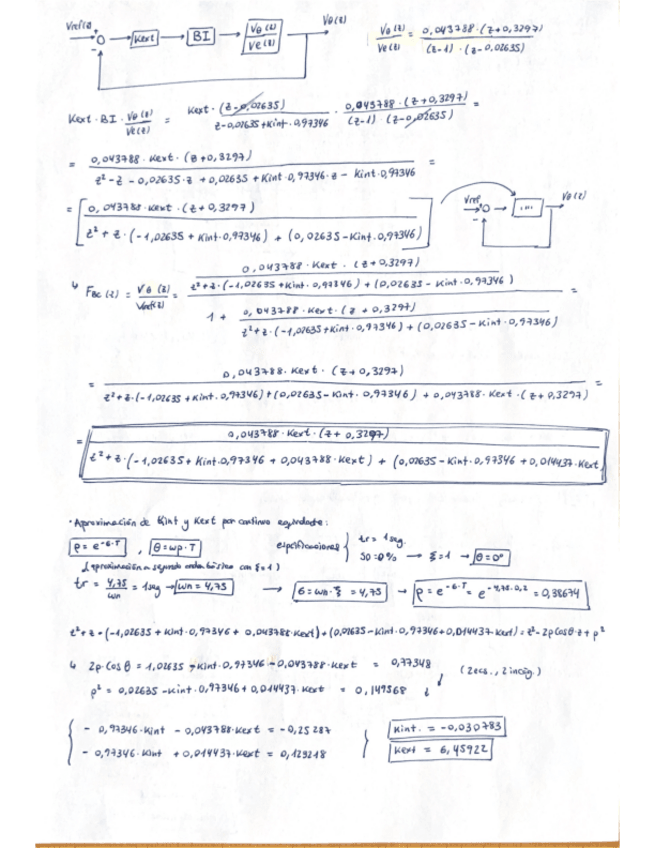 Vref(z) → O → Kext → BI → Vθ(z)/Ve(z) → Vθ(z)
Vθ(z)/Ve(z) = 0,043788·(z+0,3297) / (z-1)·(z-0,02635)
Kext · BI · Vθ(z)/Ve(z) = Kext·(z-0,02635) / z-0,02635+Kint·0,97346 · 0,043788·(z+0,3297) / (z-1)·(z-0,02635) =
= 0,043788·Kext·(z+0,3297) / z²-z-0,02635·z+0,02635+Kint·0,97346·z-Kint·0,97346 =
= [ 0,043788·Kext·(z+0,3297) / z²+z·(-1,02635+Kint·0,97346)+(0,02635-Kint·0,97346) ]
Vref → O → .... → Vθ(z)
↳ FBC(z) = Vθ(z)/Vref(z) = 0,043788·Kext·(z+0,3297) / z²+z·(-1,02635+Kint·0,97346)+(0,02635-Kint·0,97346) / 1 + 0,043788·Kext·(z+0,3297) / z²+z·(-1,02635+Kint·0,97346)+(0,02635-Kint·0,97346) =
= 0,043788·Kext·(z+0,3297) / z²+z·(-1,02635+Kint·0,97346)+(0,02635-Kint·0,97346)+0,043788·Kext·(z+0,3297) =
= 0,043788·Kext·(z+0,3297) / z²+z·(-1,02635+Kint·0,97346+0,043788·Kext)+(0,02635-Kint·0,97346+0,014437·Kext
· Aproximación de Kint y Kext por continuo equivalente:
ρ = e^-σ·T , θ = ωp·T especificaciones { tr = 1seg.
SO = 0% → ξ=1 → θ=0º
(aproximación a segundo orden básico con ξ=1)
tr = 4,75/ωn = 1seg → ωn = 4,75 → σ = ωn·ξ = 4,75 → ρ = e^-σ·T = e^-4,75·0,2 = 0,38674
z²+z·(-1,02635+Kint·0,97346+0,043788·Kext)+(0,02635-Kint·0,97346+0,014437·Kext) = z²-2ρcosθ·z+ρ²
↳ 2ρ·cosθ = 1,02635-Kint·0,97346-0,043788·Kext = 0,77348
(2ecs., 2incóg.)
ρ² = 0,02635-Kint·0,97346+0,014437·Kext = 0,149568
{ - 0,97346·Kint - 0,043788·Kext = -0,25287
- 0,97346·Kint + 0,014437·Kext = 0,129218 }
Kint. = -0,030783
Kext = 6,45922